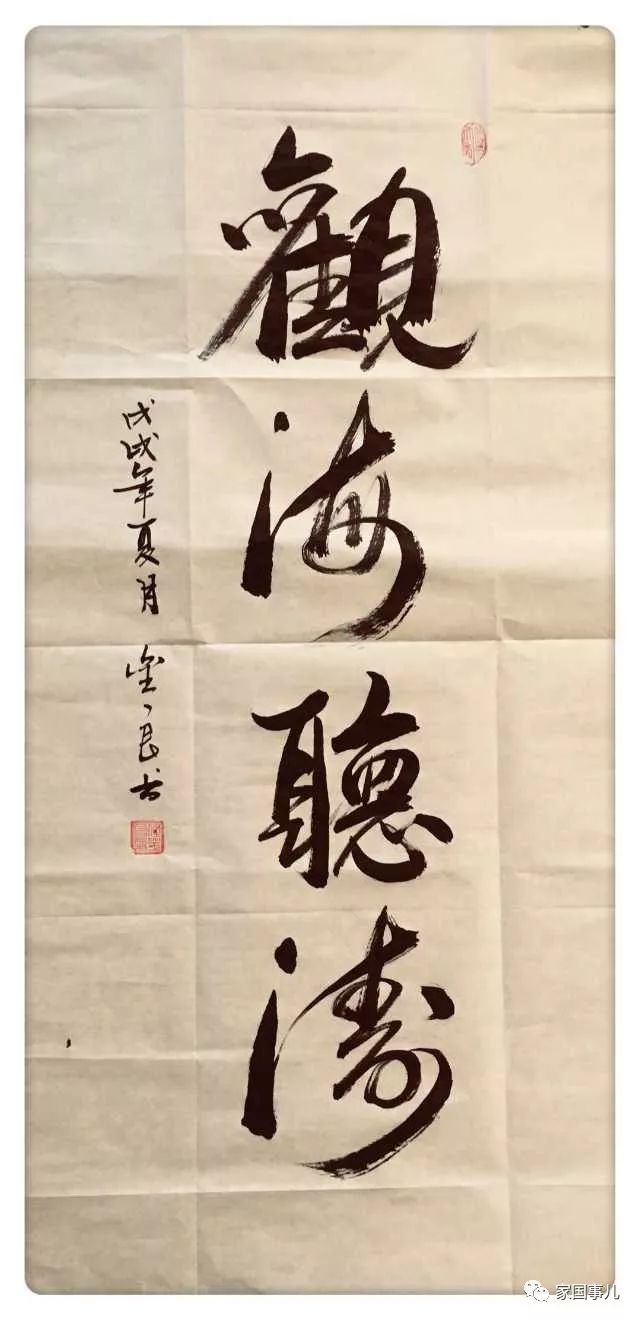 觀海聽濤
戊戌年夏月
金良书
家国事儿